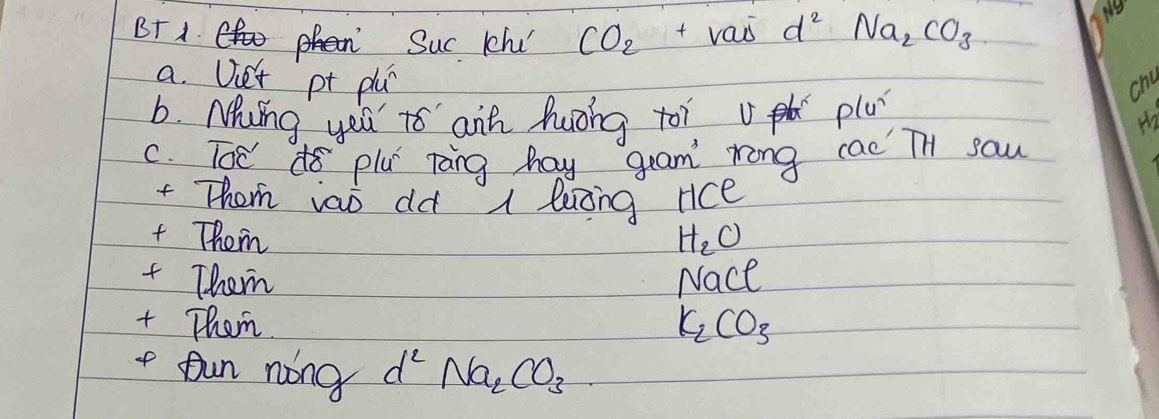 BT 1. Cho phản Sục khí CO₂ + vào d² Na₂CO₃
a. Viết pt pứ
b. Những yếu tố ảnh hưởng tới v pứ
c. Tốc độ pứ tăng hay giảm trong các TH sau
+ Thêm vào dd 1 lượng HCl
+ Thêm H₂O
+ Thêm NaCl
+ Thêm K₂CO₃
+ Đun nóng d² Na₂CO₃.
Chu
H₂